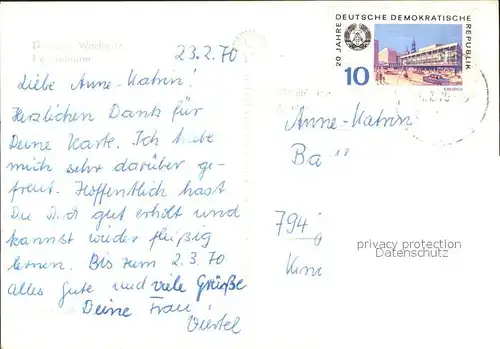 23.2.70
Dresden Wachwitz
Fernsehturm
Liebe Anne-Katrin!
Herzlichen Dank für
Deine Karte. Ich habe
mich sehr darüber ge-
freut. Hoffentlich hast
Du Dich gut erholt und
kannst wieder fleißig
lernen. Bis zum 2.3.70
alles Gute und viele Grüße
Deine Frau
Viertel
20 JAHRE DEUTSCHE DEMOKRATISCHE REPUBLIK
10
DRESDEN
Anne-Katrin
Ba
794
privacy protection
Datenschutz